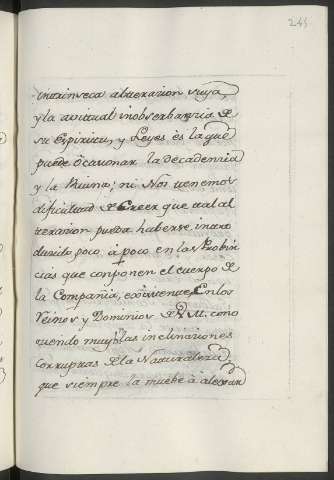 245
intrinseca alterazion suya,
y la avitual inobserbanzia de
su Espiritu, y Leyes ès la que
puede òcasionar la decadenzia
y la Ruina; ni Nos tenemos
dificultad de Creer que tal al
terazion pueda haberse intro
ducido poco à poco en las Probin
cias que conponen el cuerpo de
la Compañia, existente, En los
Reinos y Dominios de V. M. cono
ciendo muy bien las inclinaciones
Corruptas de la Naturaleza,
que siempre la muebe à alexar